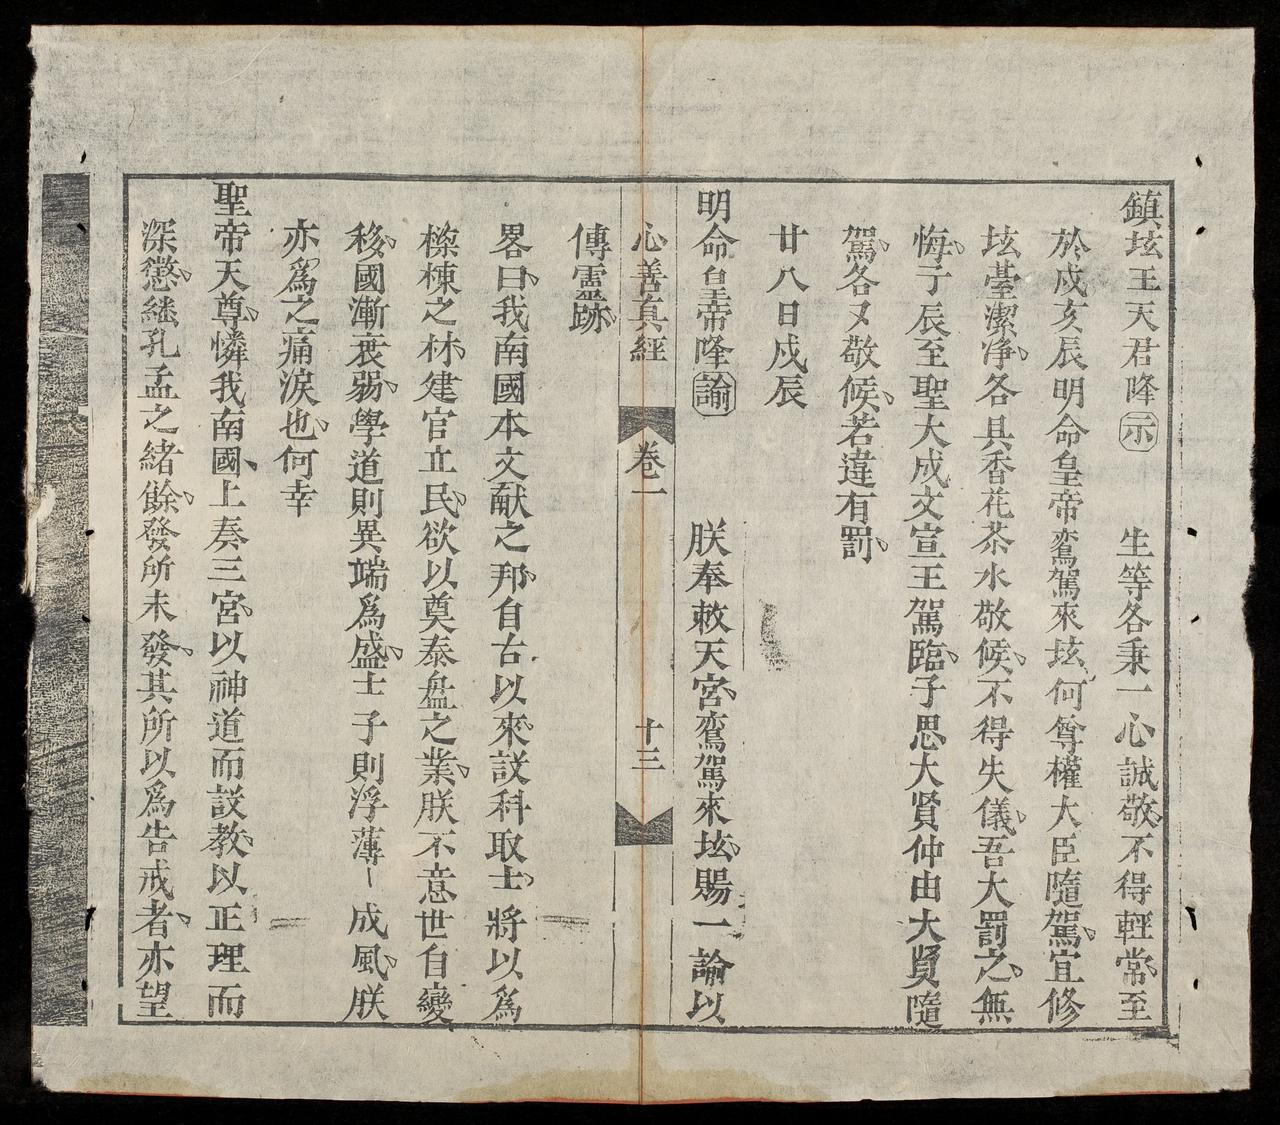 鎮坛王天君降示　生等各秉一心誠敬不得輕常至
於戌亥辰明命皇帝鸞駕來坛何等權大臣隨駕宜修
坛臺潔净各具香花茶水敬候不得失儀吾大罰之無
悔于辰至聖大成文宣王駕臨子思大賢仲由大賢隨
駕各又敬候若違有罰
廿八日戌辰
明命皇帝降諭　朕奉敕天宮鸞駕來坛賜一諭以
心善真經　卷一　十三
傳靈跡
畧曰我南國本文献之邦自古以來設科取士將以為
樑棟之材建官立民欲以奠泰盘之業朕不意世自變
移國漸衰弱學道則異端為盛士子則浮薄成風朕
亦為之痛淚也何幸
聖帝天尊憐我南國上奏三宮以神道而設教以正理而
深懲繼孔孟之緒餘發所未發其所以為告戒者亦望